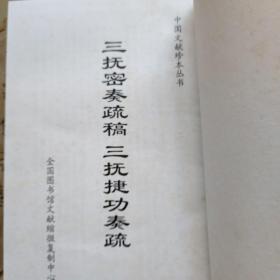 中国文献珍本丛书
三抚密奏疏稿 三抚捷功奏疏
全国图书馆文献缩微复制中心